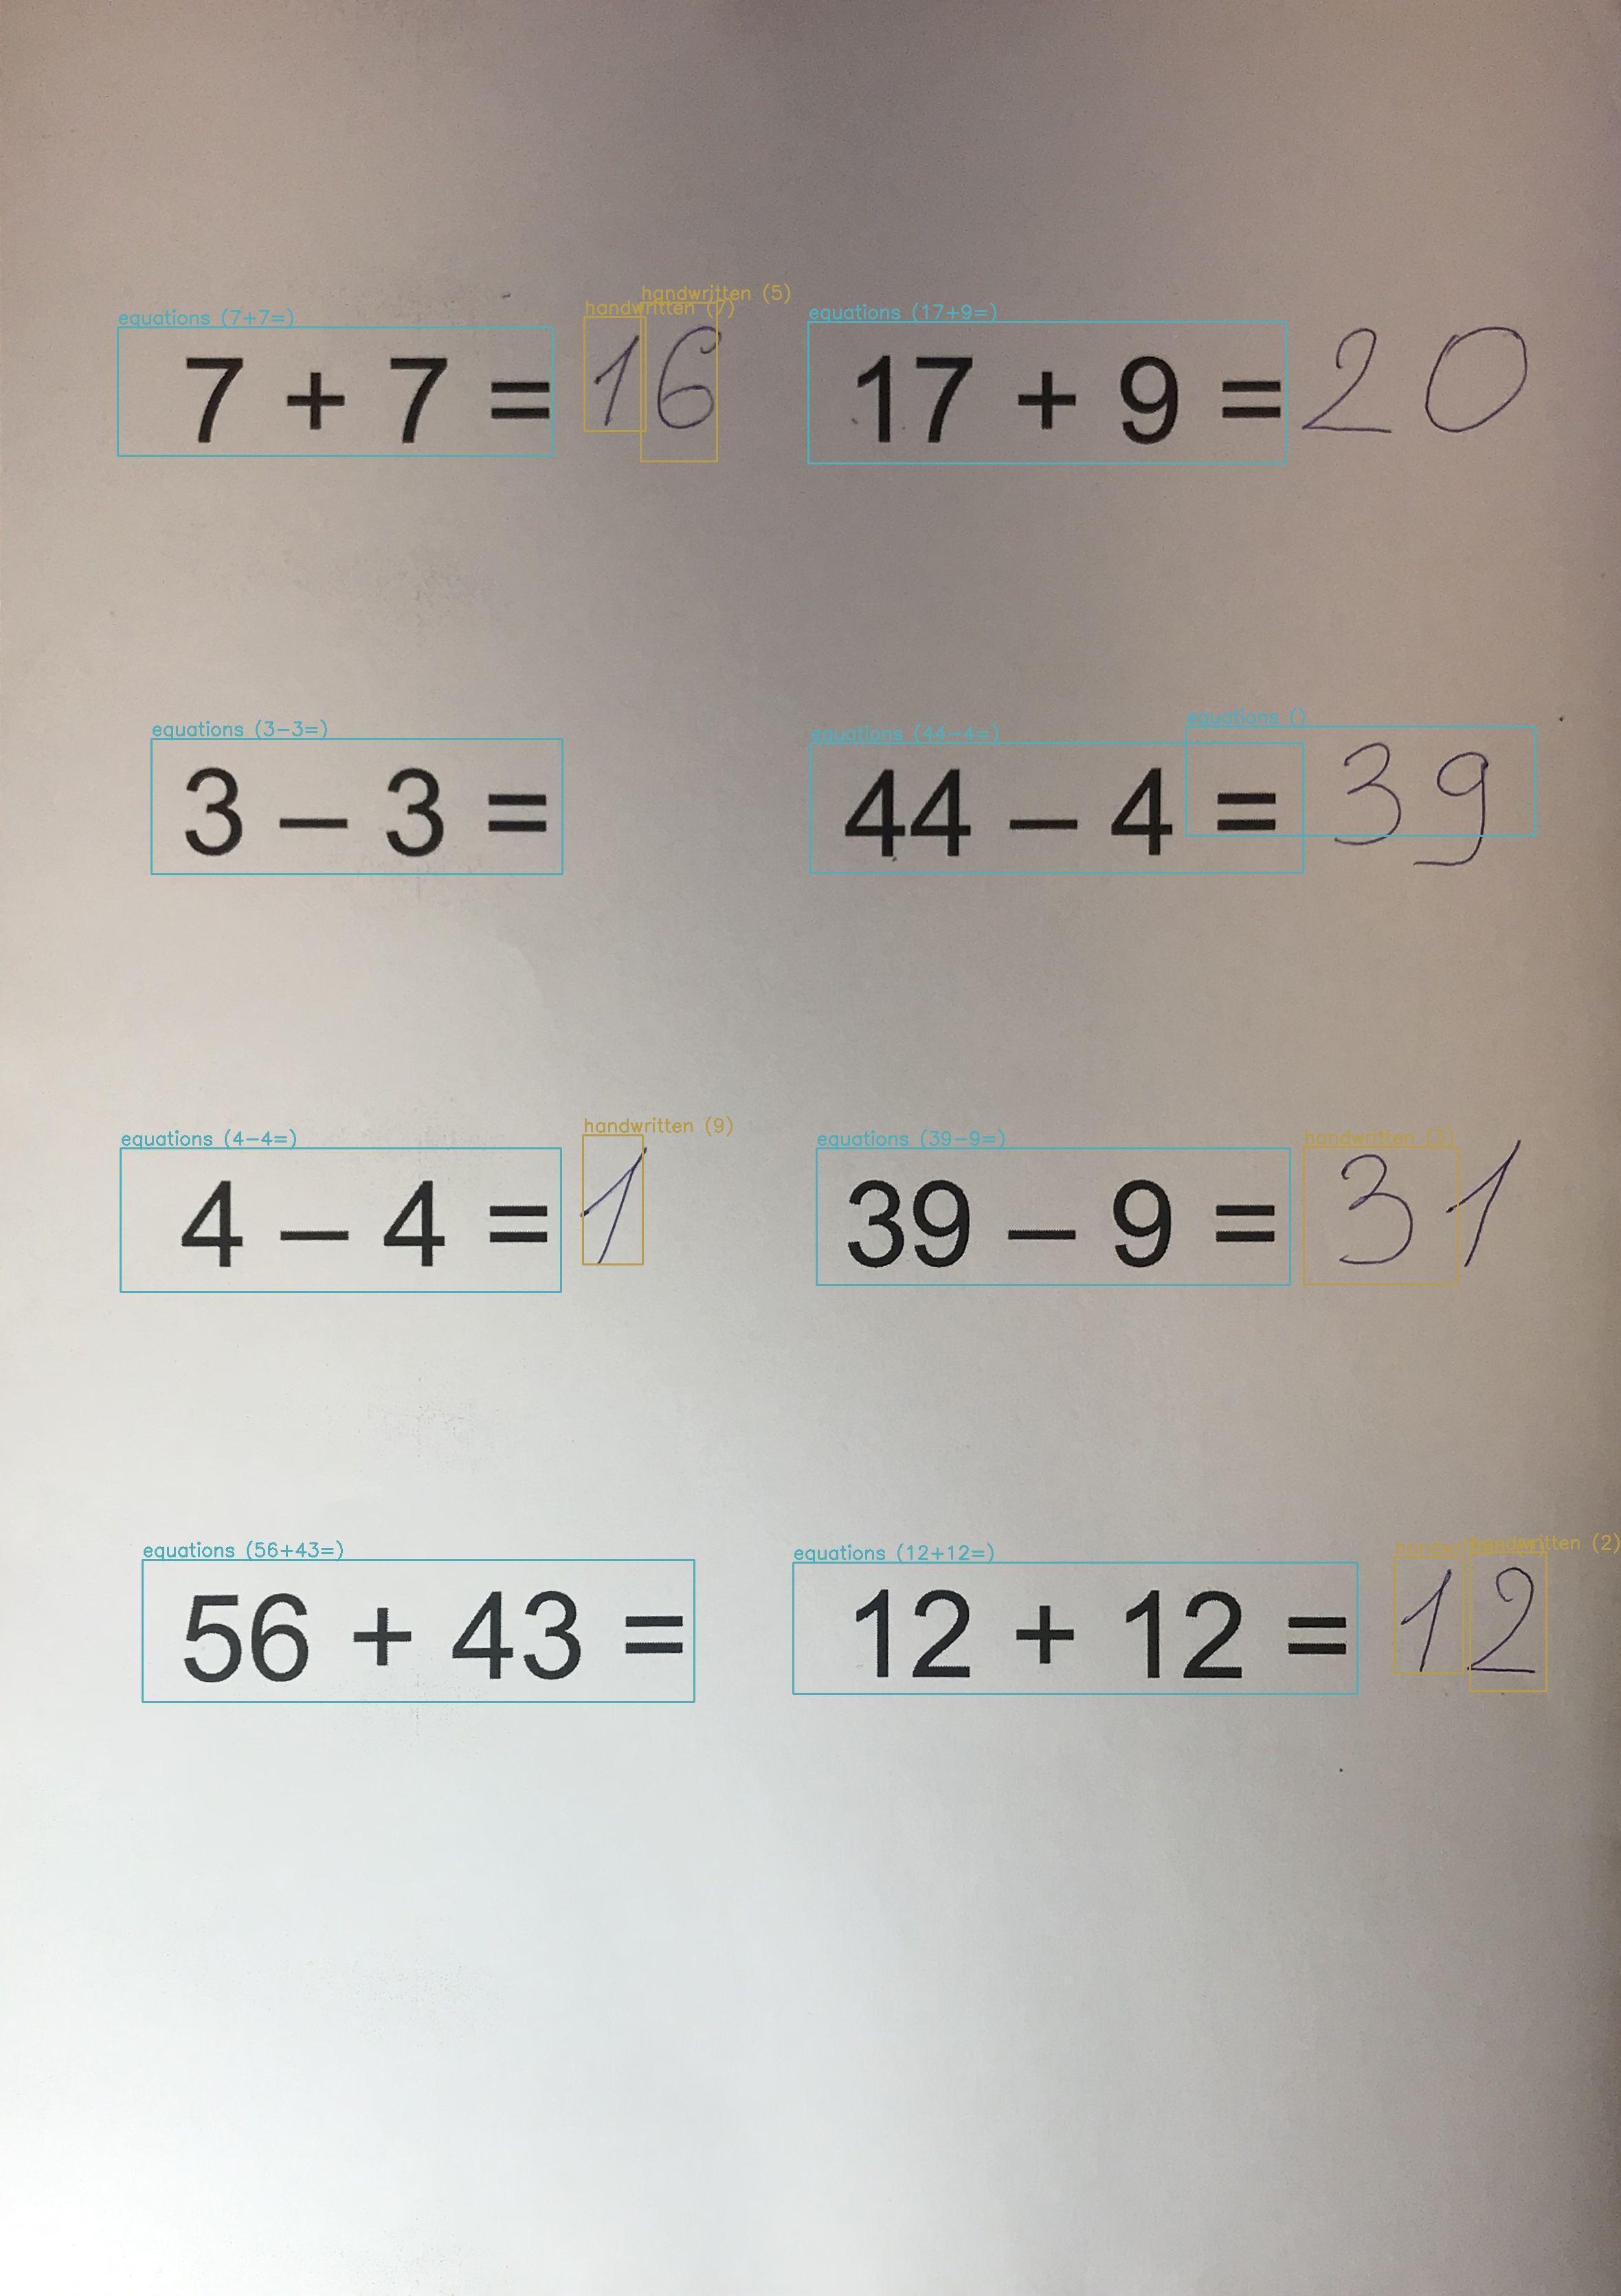 equations (7+7=) handwritten (7) handwritten (5) equations (17+9=)
7 + 7 = 16 17 + 9 = 20
equations (3-3=) equations (44-4=) equations ()
3 – 3 = 44 – 4 = 39
equations (4-4=) handwritten (9) equations (39-9=) handwritten (3)
4 – 4 = 1 39 – 9 = 31
equations (56+43=) equations (12+12=) handwritten (2)
56 + 43 = 12 + 12 = 12